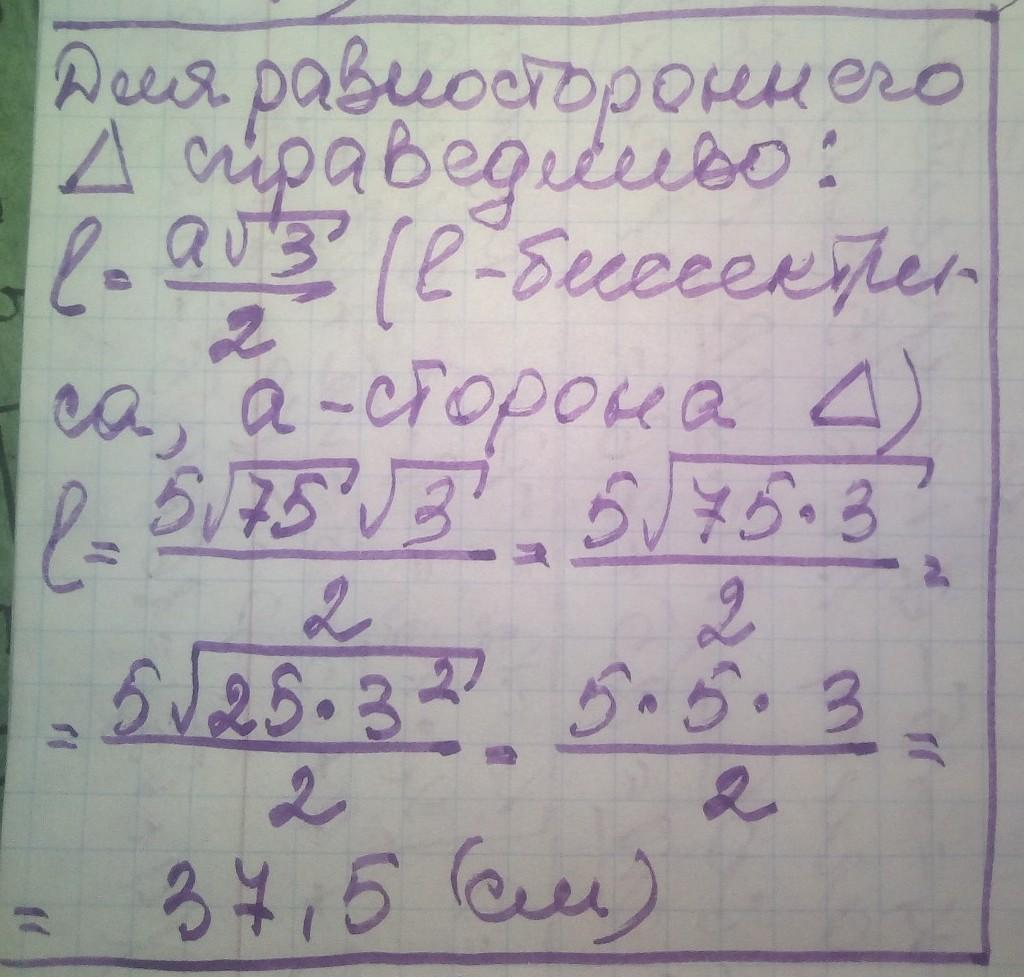 Для равностороннего
Δ справедливо:
l = a√3/2 (l - биссектри-
са, a - сторона Δ)
l = 5√75 √3/2 = 5√(75·3)/2 =
= 5√(25·3²)/2 = 5·5·3/2 =
= 37,5 (см)